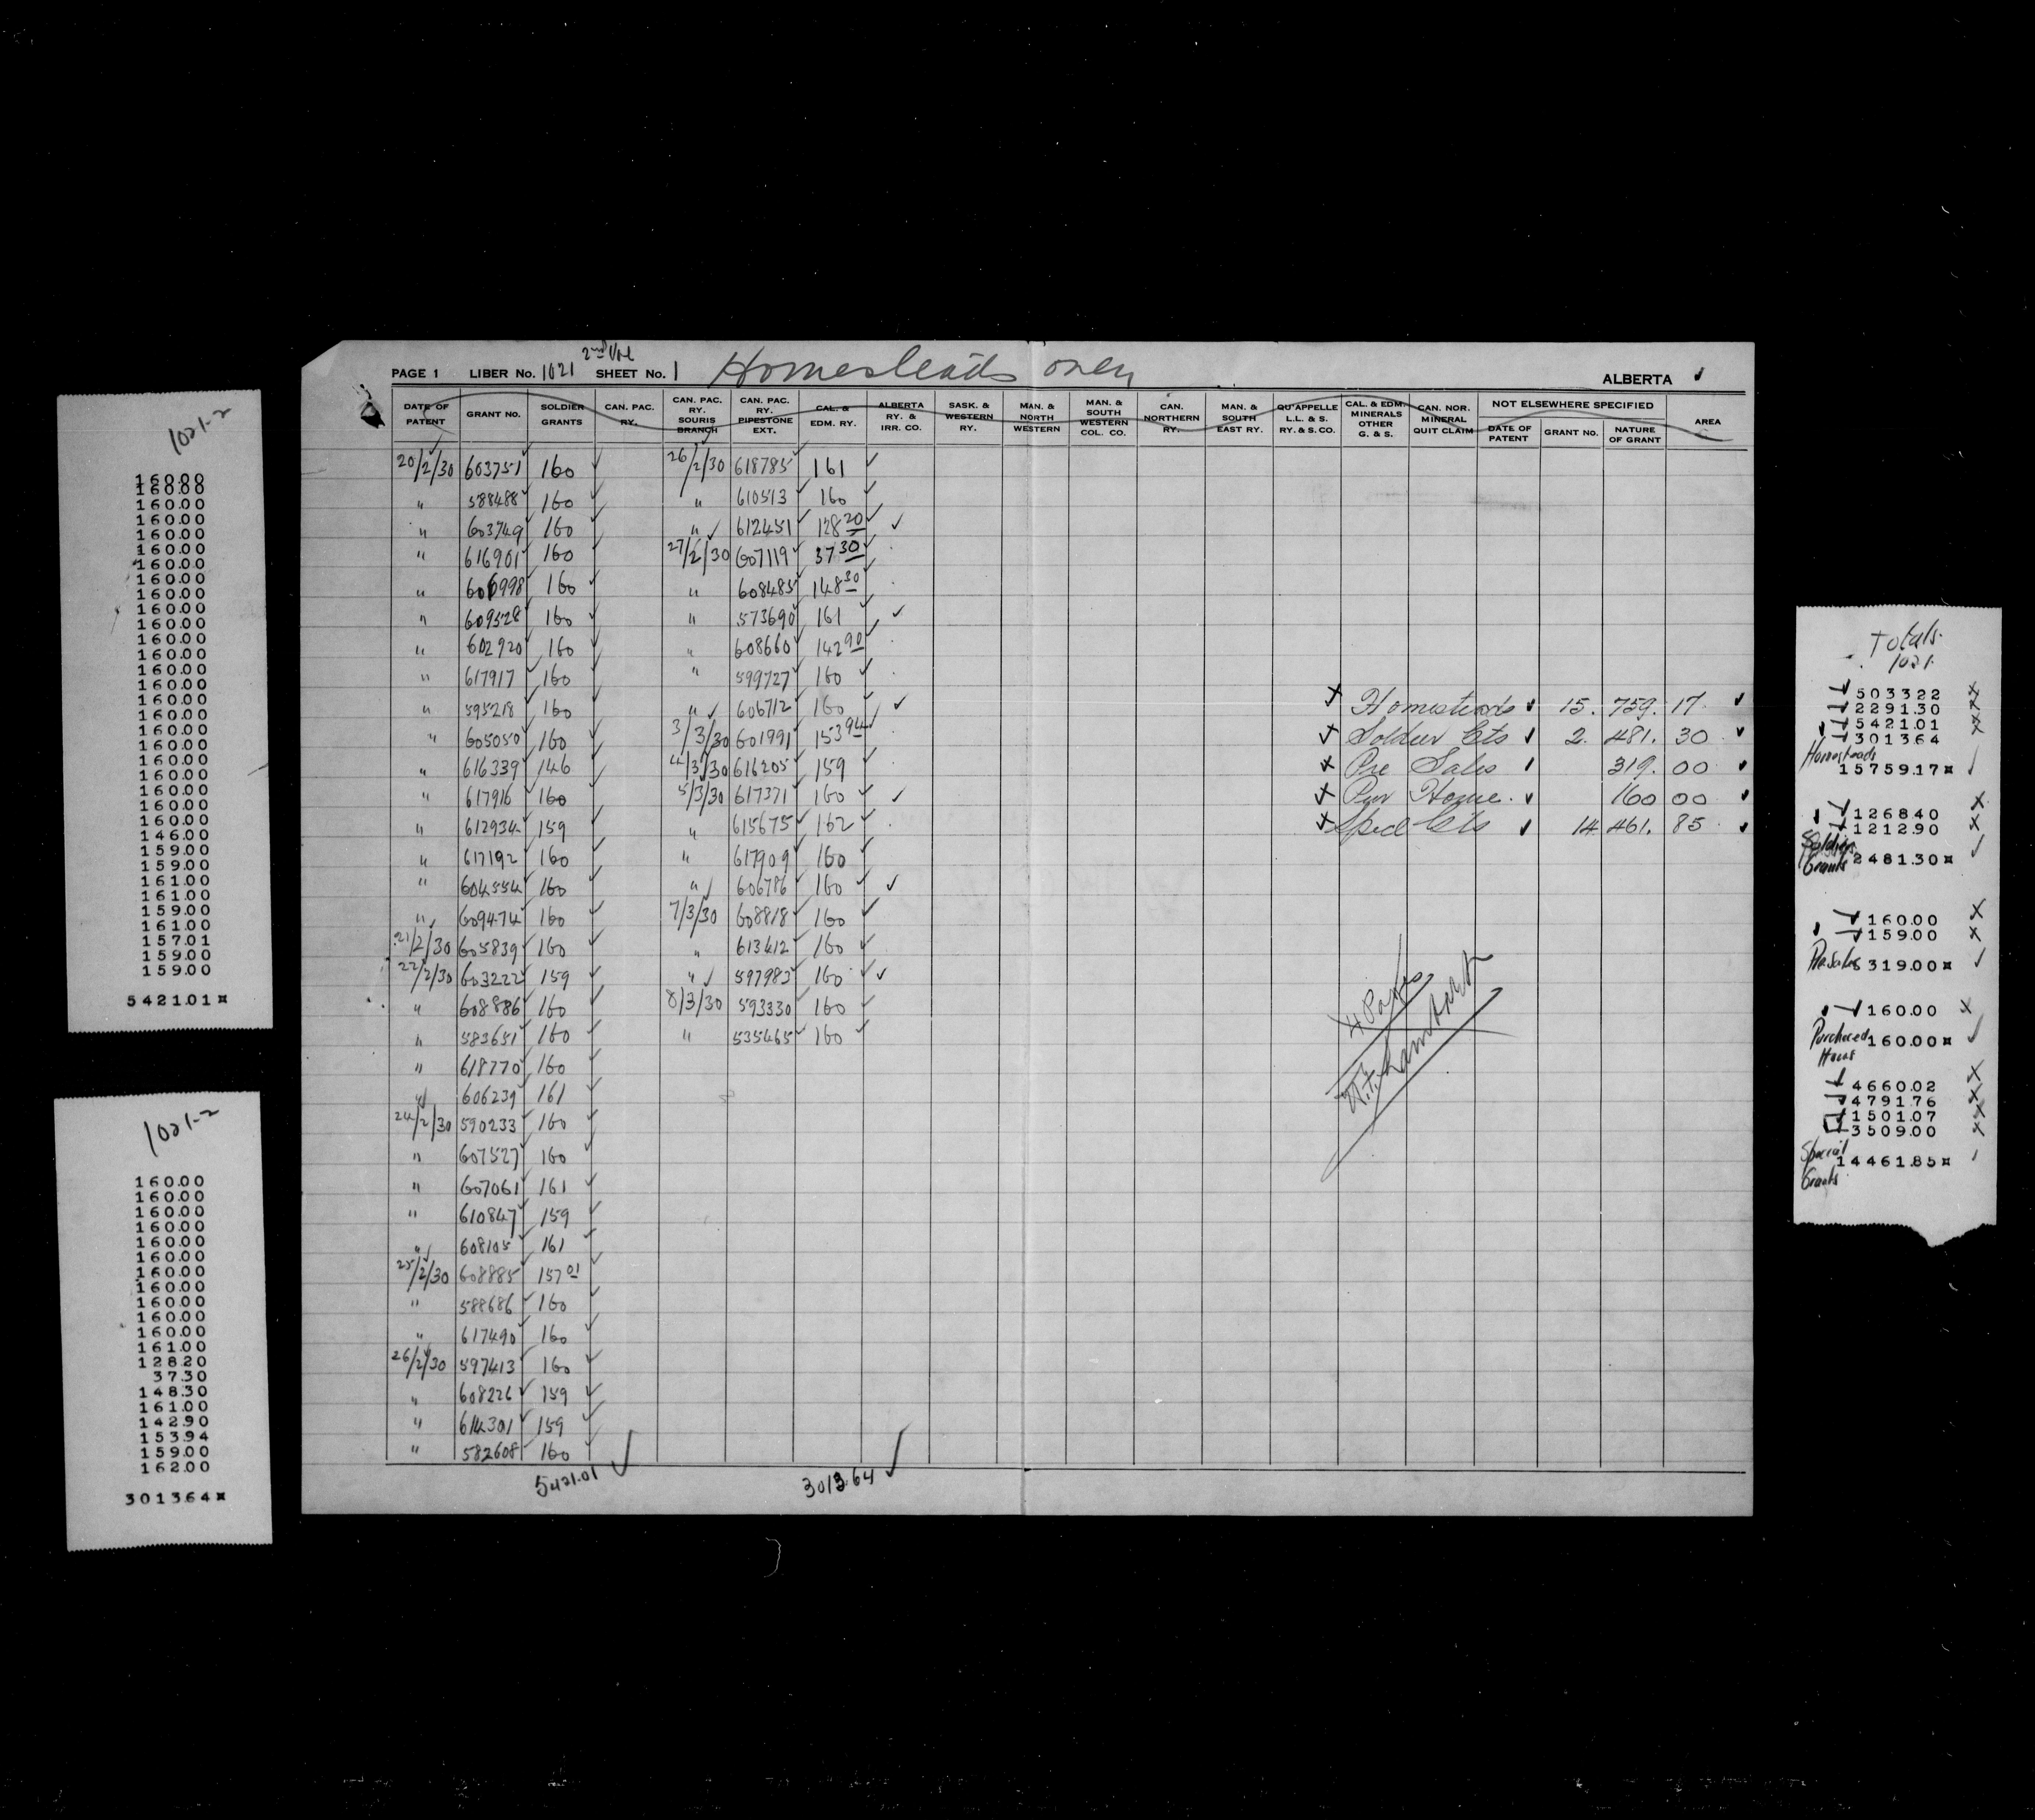 1021-2
160.00
160.00
160.00
160.00
160.00
160.00
160.00
160.00
160.00
160.00
160.00
160.00
160.00
160.00
160.00
160.00
160.00
160.00
160.00
160.00
160.00
160.00
160.00
160.00
146.00
159.00
159.00
161.00
161.00
159.00
161.00
157.01
159.00
159.00
5421.01¤
1021-2
160.00
160.00
160.00
160.00
160.00
160.00
160.00
160.00
160.00
160.00
160.00
161.00
128.20
37.30
148.30
161.00
142.90
153.94
159.00
162.00
3013.64¤
2nd Vol
PAGE 1 LIBER No. 1021 SHEET No. 1 Homesteads only ALBERTA ✓
DATE OF PATENT GRANT NO. SOLDIER GRANTS CAN. PAC. RY. CAN. PAC. RY. SOURIS BRANCH CAN. PAC. RY. PIPESTONE EXT. CAL. & EDM. RY. ALBERTA RY. & IRR. CO. SASK. & WESTERN RY. MAN. & NORTH WESTERN MAN. & SOUTH WESTERN COL. CO. CAN. NORTHERN RY. MAN. & SOUTH EAST RY. QU'APPELLE L.L. & S. RY. & S. CO. CAL. & EDM. MINERALS OTHER G. & S. CAN. NOR. MINERAL QUIT CLAIM NOT ELSEWHERE SPECIFIED DATE OF PATENT GRANT NO. NATURE OF GRANT AREA
20/2/30 603751 160 26/2/30 618785 161
" 588488 160 " 610513 160
" 603749 160 " 612451 128 20
" 616901 160 27/2/30 607119 37 30
" 606998 160 " 608485 148 30
" 609528 160 " 573690 161
" 602920 160 " 608660 142 90
" 617917 160 " 599727 160
" 595218 160 " 606712 160
" 605050 160 3/3/30 601991 153 94
" 616339 146 4/3/30 616205 159
" 617916 160 5/3/30 617371 160
" 612934 159 " 615675 162
" 617192 160 " 617909 160
" 604554 160 " 606786 160
" 609474 160 7/3/30 608818 160
21/2/30 605839 160 " 613412 160
22/2/30 603222 159 " 597983 160
" 608886 160 8/3/30 593330 160
" 583651 160 " 535465 160
" 618770 160
" 606239 161
24/2/30 590233 160
" 607527 160
" 607061 161
" 610847 159
" 608105 161
25/2/30 608885 157 01
" 588686 160
" 617490 160
26/2/30 597413 160
" 608226 159
" 614301 159
" 582608 160
5421.01 ✓ 3013.64 ✓
x Homesteads ✓ 15. 759. 17 ✓
x Soldier Gts ✓ 2. 481. 30 ✓
x Pre Sales ✓ 319. 00 ✓
x Pur Home. ✓ 160 00 ✓
x Specl Gts ✓ 14 461. 85 ✓
4 Pages
Totals.
1021.
5033.22
2291.30
5421.01
3013.64
Homesteads
15759.17¤
1268.40
1212.90
Soldiers
Grants 2481.30¤
160.00
159.00
Pre Sales 319.00¤
160.00
Purchased 160.00¤
Homes
4660.02
4791.76
1501.07
3509.00
Special
14461.85¤
Grants